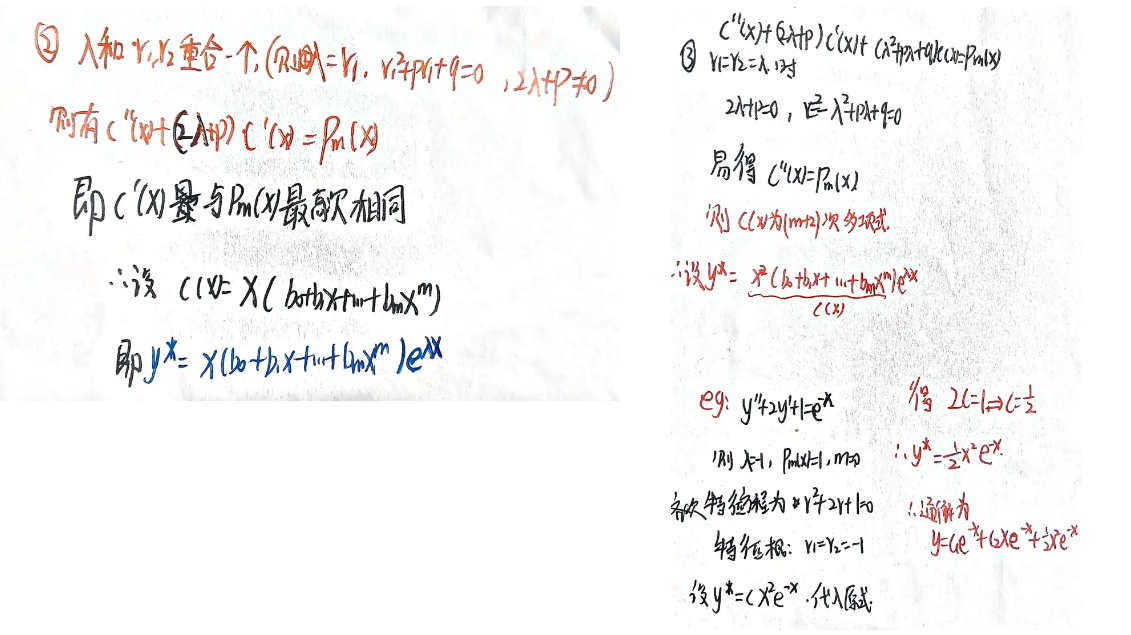 ② λ和r₁,r₂重合一个,(则λ=r₁, r₁²+pr₁+q=0, 2λ+p≠0)
则有C''(x)+(2λ+p)C'(x)=Pm(x)
即C'(x)与Pm(x)最高次相同
∴设 C(x)=x(b₀+b₁x+...+bₘxᵐ)
即y*=x(b₀+b₁x+...+bₘxᵐ)e^λx
C''(x)+(2λ+p)C'(x)+(λ²+pλ+q)C(x)=Pm(x)
③ r₁=r₂=λ时
2λ+p=0, λ²+pλ+q=0
易得 C''(x)=Pm(x)
则 C(x)为(m+2)次多项式.
∴设y*=x²(b₀+b₁x+...+bₘxᵐ)e^λx
C(x)
eg: y''+2y'+1=e^-x
则 λ=-1, Pm(x)=1, m=0
齐次特征方程为 r²+2r+1=0
特征根: r₁=r₂=-1
设y*=Cx²e^-x.代入原式.
得 2C=1⇒C=1/2
∴y*=1/2x²e^-x.
∴通解为
y=C₁e^-x+C₂xe^-x+1/2x²e^-x